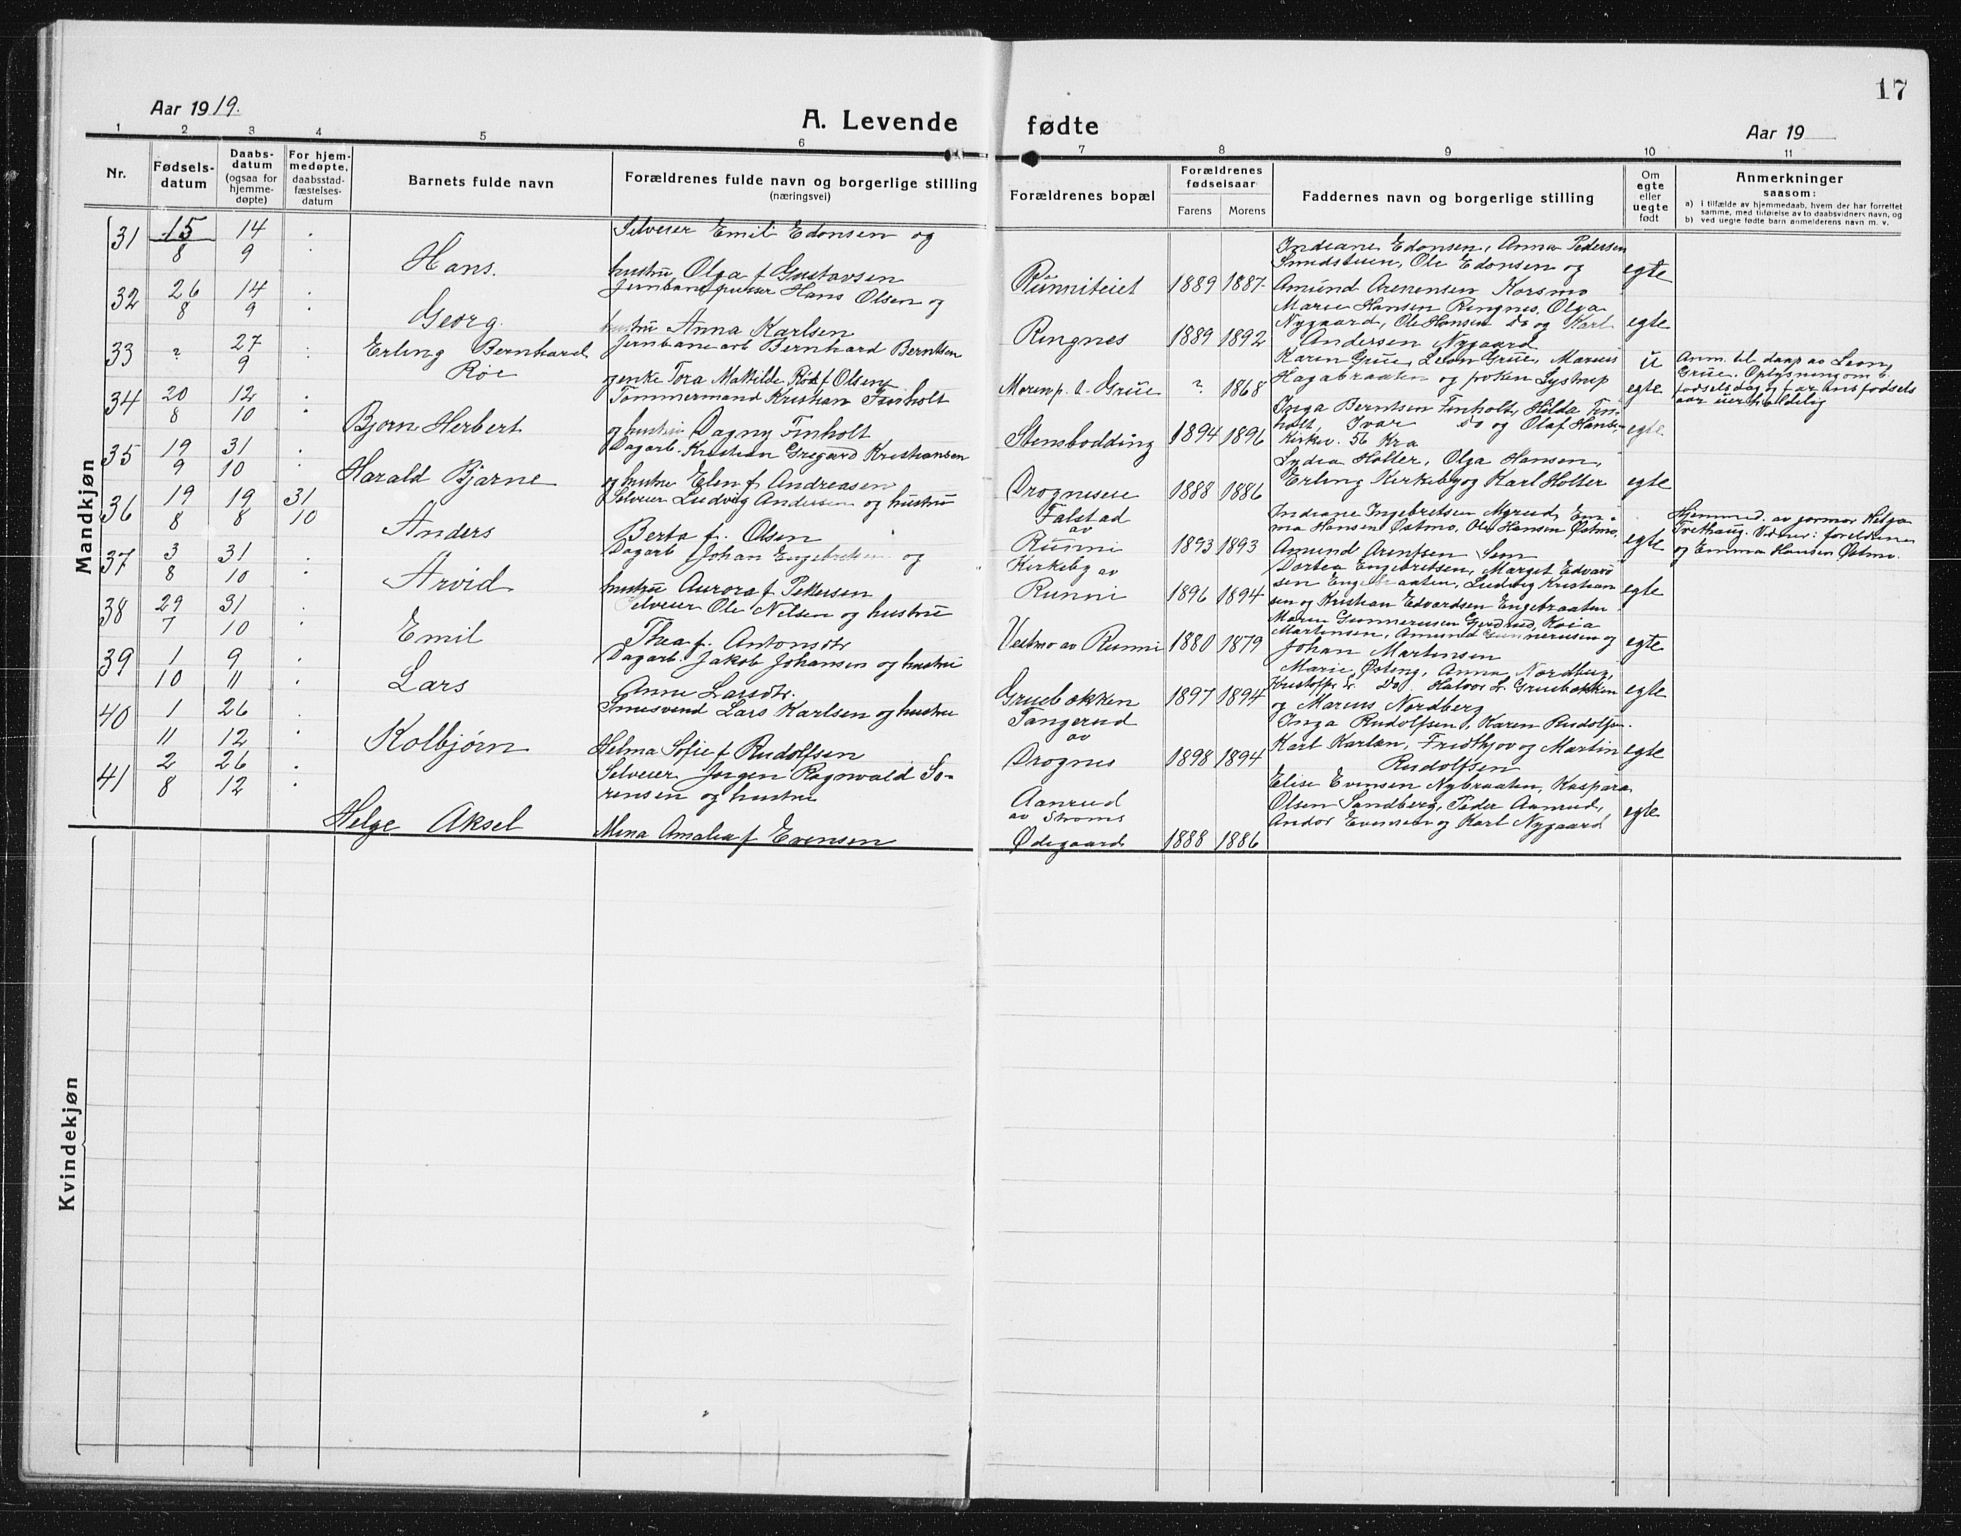 17
Aar 1919.
A. Levende fødte
Aar 19
1 2 3 4 5 6 7 8 9 10 11
Nr.
Fødsels-
datum
Daabs-
datum
(ogsaa for
hjemme-
døpte)
For hjem-
medøpte,
daabsstad-
fæstelses-
datum
Barnets fulde navn
Forældrenes fulde navn og borgerlige stilling
(næringsvei)
Forældrenes bopæl
Forældrenes
fødselsaar
Farens Morens
Faddernes navn og borgerlige stilling
Om
egte
eller
uegte
født
Anmerkninger
saasom:
a) i tilfælde av hjemmedaab, hvem der har forrettet
samme, med tilføielse av to daabsvidners navn, og
b) ved uegte fødte barn anmelderens navn m. v.
Mandkjøn
31 15/8 14/9
Hans.
Selveier Emil Edonsen og
hustru, Olga f Gustavsen
Runniteiet 1889 1887
Indiane Edonsen, Anna Pedersen
Sundstuen, Ole Edonsen og
Amund Korsmo
egte
32 26/8 14/9
Georg
Hans Olsen og
hustru Anna Karlsen
Ringnes 1889 1892
Marie Hansen Ringnes, Olga
Nygaard, Ole Hansen do og Karl
Andersen Nygaard
egte
33 ? 27/9
Erling Bernhard
Roe
Jernbanearb Bernhard Berntsen
og enke Tora Mathilde Rød f Olsen
Moren p. t. Grue ? 1868
Karen Grue, Leon Grue, Marius
Hagabraaten og frøken Lystrup
u
egte
Anm. til daap av Leon
Grue. Oplysning om b.
fødselsdag og farens fødsels
aar uerholdelig
34 20/8 12/10
Bjorn Herbert
Tømmermand Kristian Finholt
og hustru Dagny Finholt
Stensbodding 1894 1896
Inga Berntsen Finholt, Hilda Fin-
holt, Ivar do og Olaf Hansen
Kirkev. 56 Kra
egte
35 19/9 31/10
Harald Bjarne
Dagarb. Kristian Gregard Kristiansen
og hustru Elen f. Andreasen
1888 1886
Lydia Holter, Olga Hansen,
Erling Kirkeby og Karl Holter
egte
36 19/8 19/8 31/10
Anders
Selveier Ludvig Andersen og hustru
Berta f. Olsen
Falstad
av
Runni 1893 1893
Indiane Ingebretsen Myrud, Em-
ma Hansen Østmo, Ole Hansen Østmo,
Amund Arentsen Sem
egte
Hjemmed. av jormor Helga
Tvethaug. Vidner: foreldrene
og Emma Hansen Østmo.
37 3/8 31/10
Arvid
Dagarb Johan Engebretsen og
hustru Aurora f Pettersen
Kirkeby av
Runni 1896 1894
Dortea Engebretsen, Marget Edvard
sen Engebraaten, Ludvig Kristian
sen og Kristian Edvardsen Engebraaten
egte
38 29/7 31/10
Emil
Selveier Ole Nilsen og hustru
Thea f. Antonsdtr
Vestmo av Runni 1880 1879
Maren Gunnerusen Gjerdrud, Kaia
Martinsen, Amund Gunnerusen og
Johan Martinsen
egte
39 1/10 9/11
Lars
Dagarb. Jakob Johansen og hustru
Anne Larsdtr.
Gruebækken 1897 1894
Marie Østeng, Anna Nordberg,
Kristoffer L. Do. Halvor L. Gruebækken
og Marius Nordberg
egte
40 1/11 26/12
Kolbjørn
Smesvend Lars Karlsen og hustru
Helma Sofie f Rudolfsen
Tangerud
av
Drognes 1898 1894
Inga Rudolfsen, Karen Rudolfsen.
Karl Karlsen, Fridthjov og Martin
Rudolfsen
egte
41 2/8 26/12
Helge Aksel
Selveier Jorgen Ragnvald So-
rensen og hustru
Mina Amalia f Evensen
Aanrud
av Stroms
Ødegaard 1888 1886
Elise Evensen Nybraaten, Kaspara
Olsen Sandberg, Peder Aamud,
Andor Evensen og Karl Nygaard
egte
Kvindekjøn